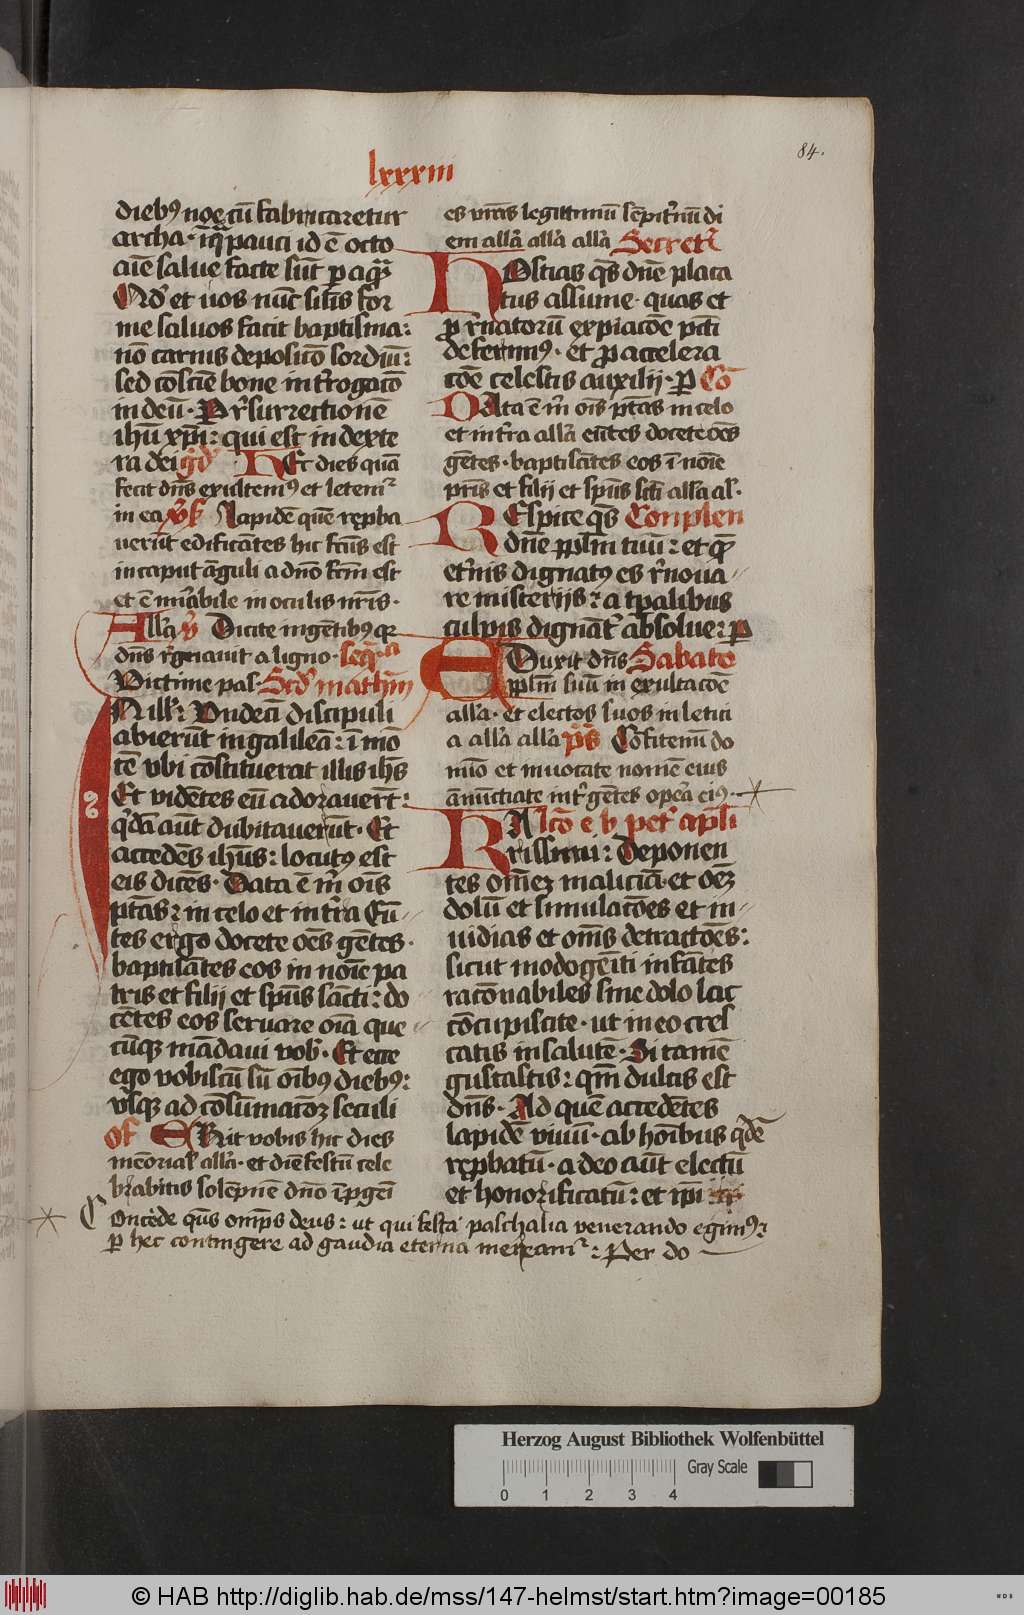 84.
lxxxiii
dieb9 noe cū fabricaretur
archa · ī q̄ pauci id ē octo
aīe salue facte sūt p aquā
Qd' et uos nūc silīs for
me saluos facit baptisma:
nō carnis deposicō sordiū:
sed cōsciē bone interrogacō
in deū · Per resurrectionē
ihū xp̄i: qui est in dexte
ra dei gd' HEc dies quā
fecit dn̄s exultem9 et letem'
in ea v' k Lapidē quē repba
uerūt edificātes hic fcūs est
in caput āguli a dn̄o fcm̄ est
et ē m'abile in oculis nr̄is ·
Alla v' Dicite in gētibus qr
dn̄s regnauit a ligno · seq̄cia
Victime pas · Scd' mathm̄
IN ill' : Vndecī discipuli
abierūt in galileā : ī mō
tē vbi cōstituerat illis ih̄s
Et vidētes eū adorauerūt :
q'dā aūt dubitauerūt · Et
accedēs ih̄us : locut9 est
eis dicēs · Data ē m' oīs
ptās : in celo et in tr̄a Eū
tes ergo docete oēs gētes ·
baptisātes eos in noīe pa
tris et filij et spūs sancti : do
cētes eos seruare oīa que
cūq mādaui vob' · Et ecce
ego vobiscū sū oīb9 dieb9 :
vsq ad cōsūmacōꝫ seculi
of ERit vobis hic dies
memorial' alla · et diē festū cele
brabitis solēpnē dn̄o ī pgeī
es vrās legittimū sēpit'nū di
em alla alla alla Secret'
HOstias qs dn̄e placa
tus assume · quas et
p r'natorū expiacōe pcti
deferim9 · et p accelera
cōe celestis auxilij · P Cō
DAta ē m' oīs ptās in celo
et in tr̄a alla eūtes docete oēs
gētes · baptisātes eos ī noīe
pr̄is et filij et spūs scī alla al' ·
REspice qs Conplen
dn̄e pplm tuū : et q̄
et'nis dignat9 es r'noua
re misterijs : a tpalibus
culpis dignāt' absolue : P
EDuxit dn̄s Sabato
pplm suū in exultacōe
alla · et electos suos in letici
a alla alla ps Cōfitemī do
mīo et inuocate nomē eius
ānūctiate int' gētes opera ei9 ·
KAr lcō e b pet' apli
rissimi : Deponen
tes omēꝫ maliciā · et oēꝫ
dolū et simulacōes et in
uidias et omīs detractōes :
sicut modo gēiti infātes
racōnabiles sine dolo lac
cōcupiscite · ut in eo cres
catis in salutē · Si tamē
gustastis : qm̄ dulcis est
dn̄s · Ad quē accedētes
lapidē viuū · ab hoībus q'dē
repbatū · a deo aūt electū
et honorificatū : et ipi
Concede qs omps deus : ut qui festa paschalia venerando egim9 :
p hec contingere ad gaudia eterna mereamr : Per do
Herzog August Bibliothek Wolfenbüttel
Gray Scale
0 1 2 3 4
© HAB http://diglib.hab.de/mss/147-helmst/start.htm?image=00185